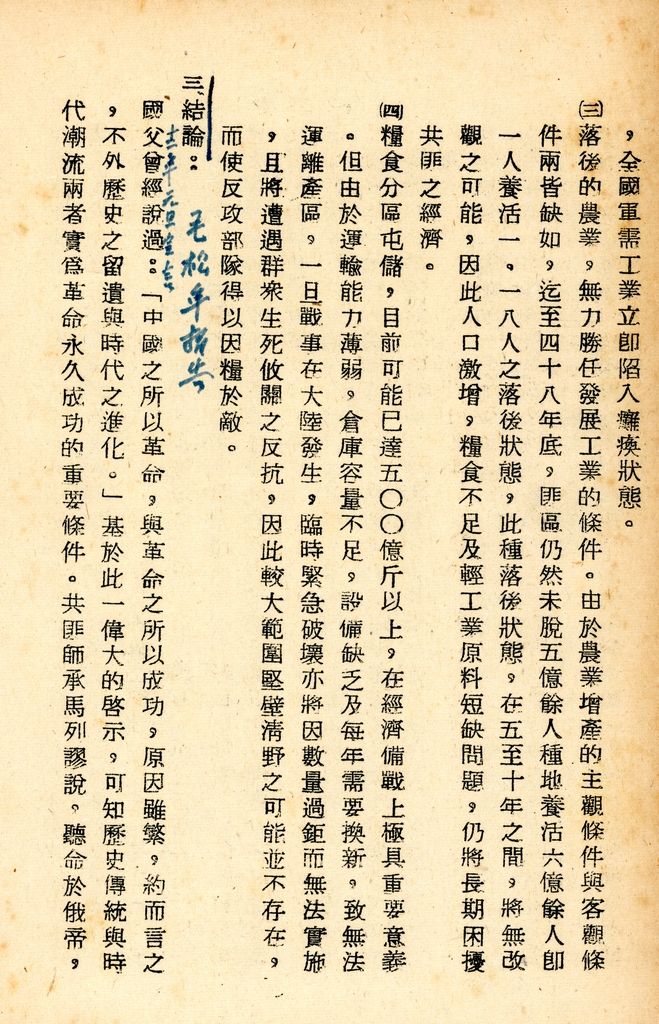 ，全國軍需工業立卽陷入癱瘓狀態。
㈢落後的農業，無力勝任發展工業的條件。由於農業增產的主觀條件與客觀條
件兩皆缺如，迄至四十八年底，匪區仍然未脫五億餘人種地養活六億餘人卽
一人養活一．一八人之落後狀態，此種落後狀態，在五至十年之間，將無改
觀之可能，因此人口激增，糧食不足及輕工業原料短缺問題，仍將長期困擾
共匪之經濟。
㈣糧食分區屯儲，目前可能已達五〇〇億斤以上，在經濟備戰上極具重要意義
。但由於運輸能力薄弱，倉庫容量不足，設備缺乏及每年需要換新，致無法
運離產區，一旦戰事在大陸發生，臨時緊急破壞亦將因數量過鉅而無法實施
，且將遭遇群衆生死攸關之反抗，因此較大範圍堅壁淸野之可能並不存在，
而使反攻部隊得以因糧於敵。
三、結論：
毛松年報告
年元旦
國父曾經說過：「中國之所以革命，與革命之所以成功，原因雖繁，約而言之
，不外歷史之留遺與時代之進化。」基於此一偉大的啓示，可知歷史傳統與時
代潮流兩者實爲革命永久成功的重要條件。共匪師承馬列謬說，聽命於俄帝，